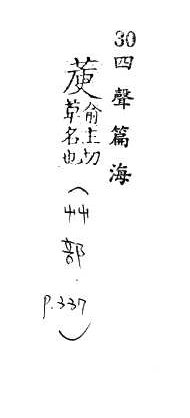 30四聲篇海
萸俞主切草名也(艸部.P.337)